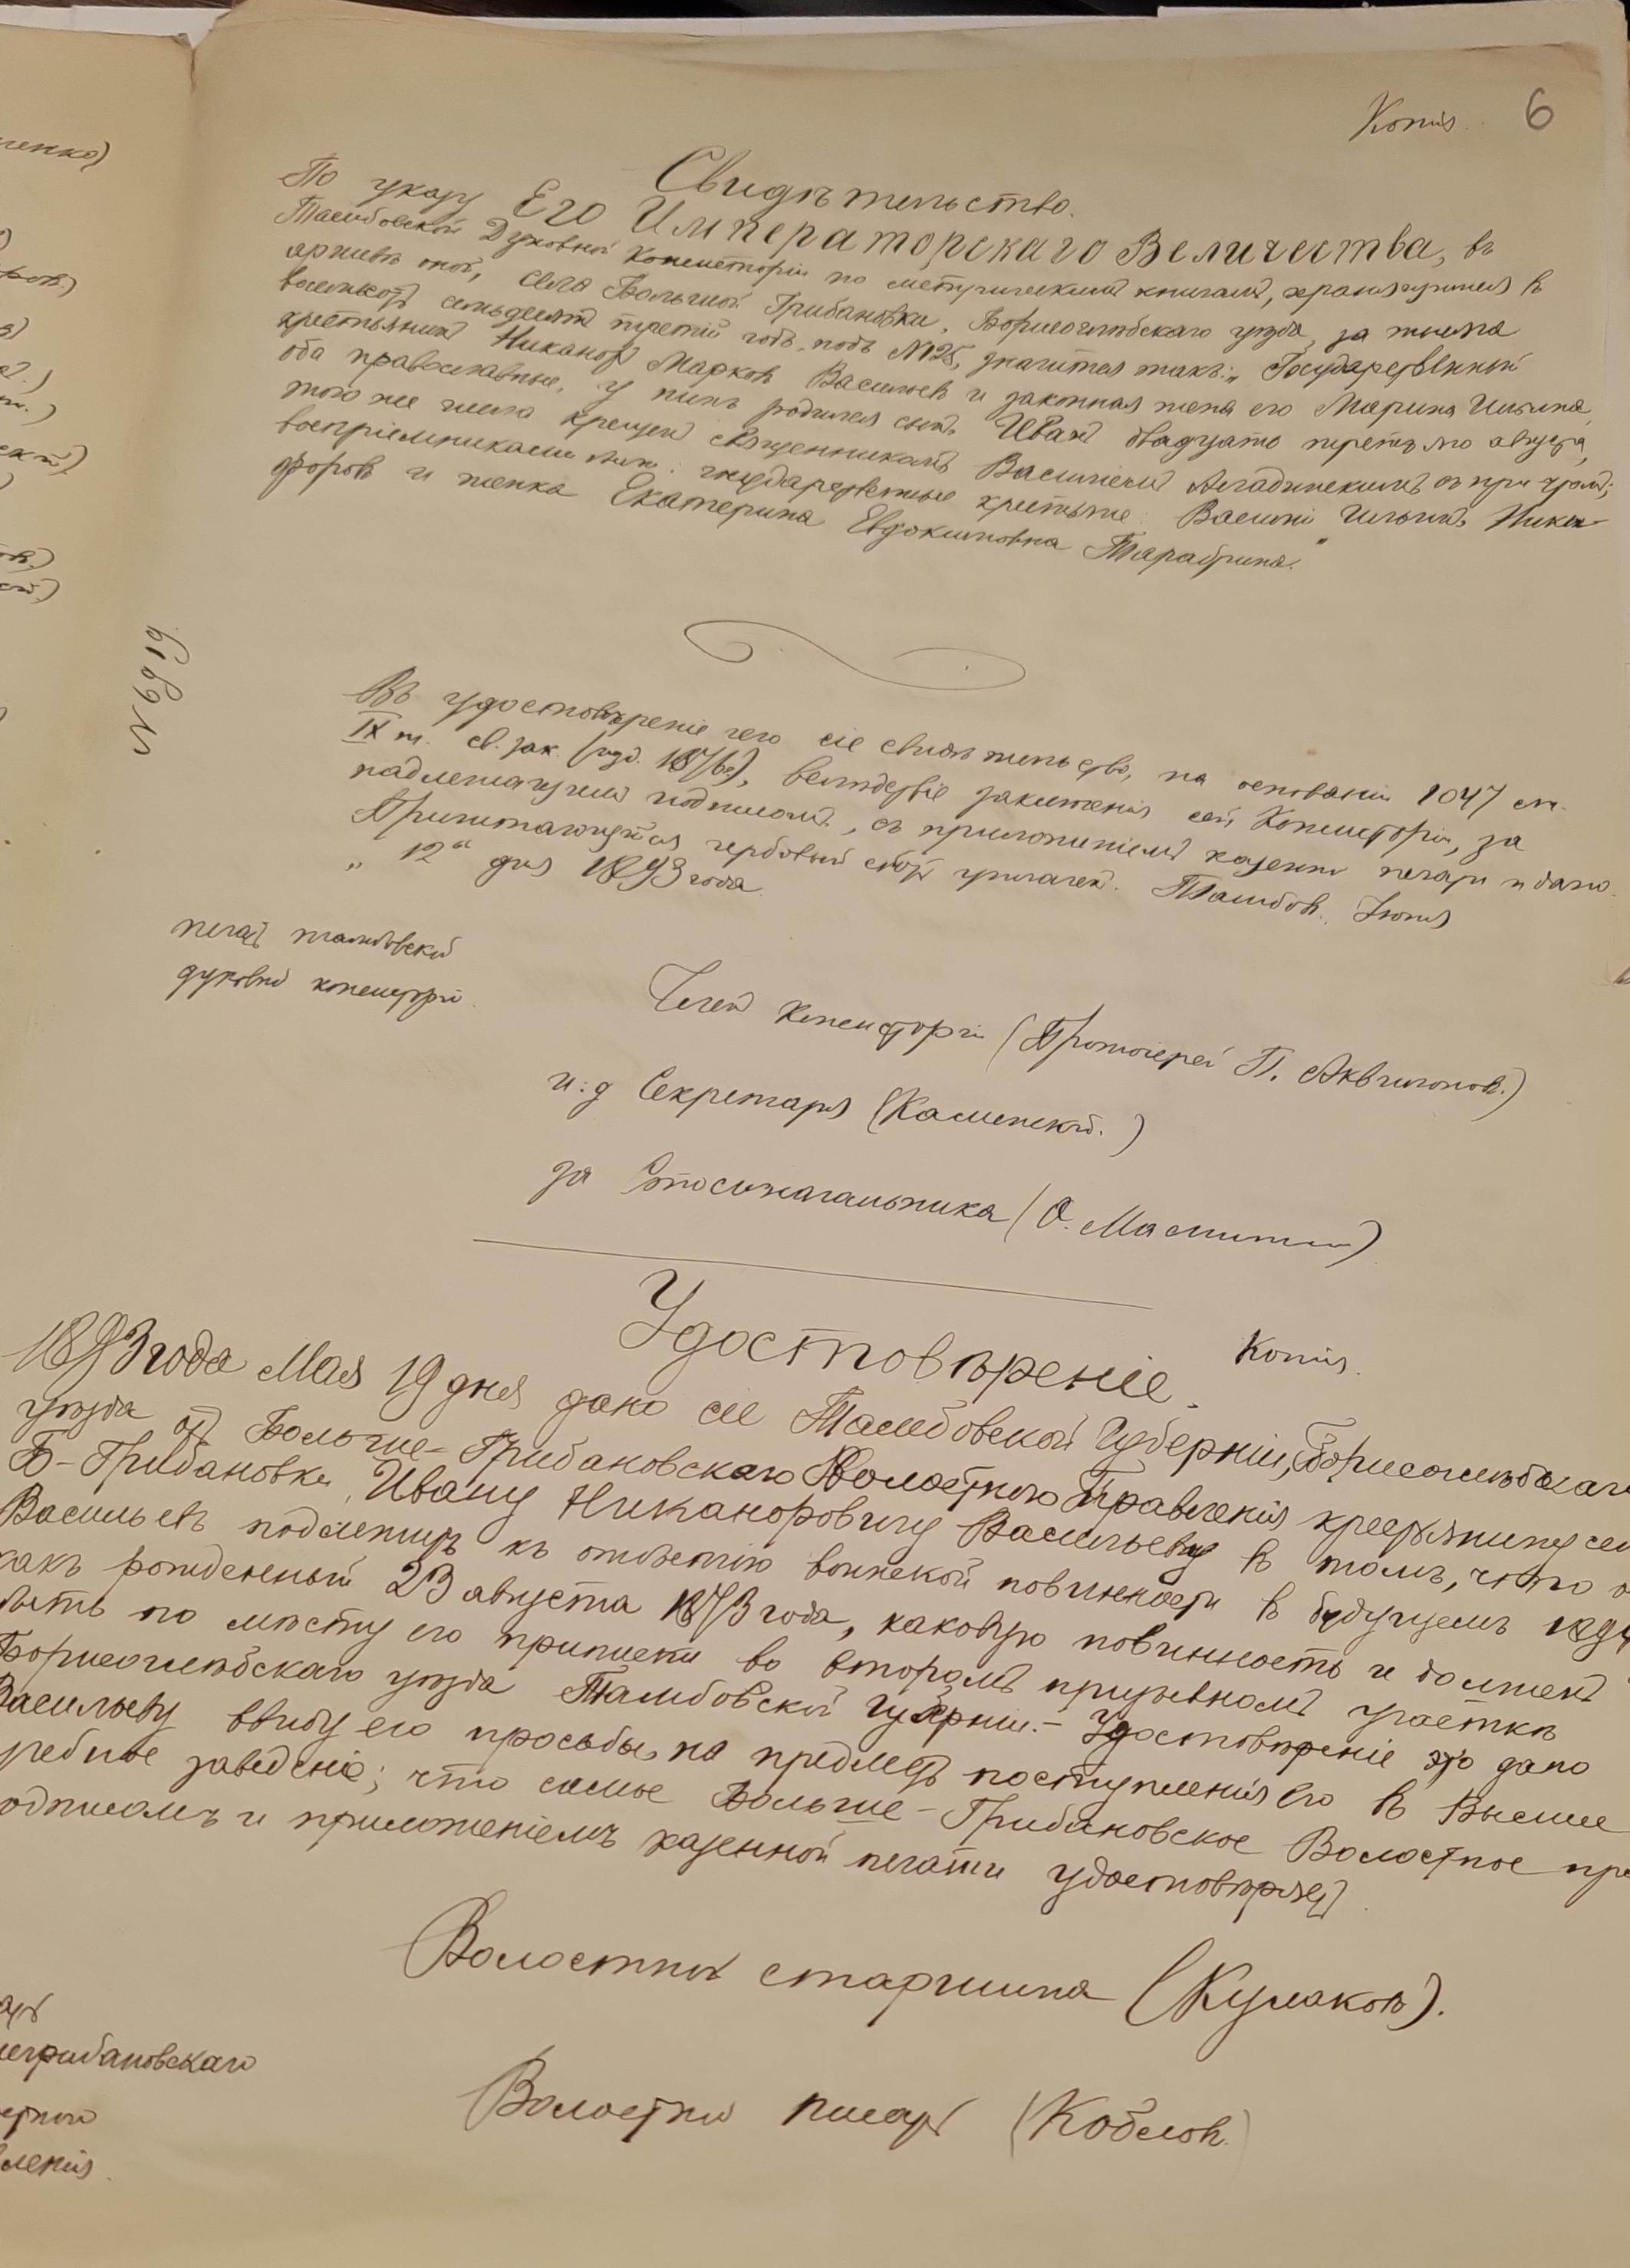 Копія 6
Свидѣтельство.
По указу Его Императорскаго Величества, въ
Тамбовской Духовной Консисторіи по метрическимъ книгамъ, хранящимся въ
архивѣ оной, села Большой Грибановки, Борисоглѣбскаго уѣзда, за тысяча
восемьсотъ семьдесятъ третій годъ, подъ №125, значится такъ: „Государственный
крестьянинъ Никаноръ Марковъ Васильевъ и законная жена его Марина Ильина,
оба православные, у нихъ родился сынъ Иванъ двадцать третьяго августа,
того же числа крещенъ священникомъ Василіемъ съ причтомъ;
воспріемниками были: государственные крестьяне: Василій Ильинъ Ники-
форовъ и женка Екатерина Евдокимовна Тарабрина."
№ 6919
Въ удостовѣреніе чего сіе свидѣтельство, на основаніи 1047 ст.
IX т. св. зак. (изд. 1876г), вслѣдствіе заключенія сей Консисторіи, за
надлежащимъ подписомъ, съ приложеніемъ казенной печати и дано.
Причитающійся гербовый сборъ уплаченъ. Тамбовъ. Іюня
„12" дня 1893 года.
печать тамбовской
духовной консисторіи
Членъ Консисторіи (Протоіерей П. Аквилоновъ.)
и.д Секретаря (Каменскій.)
за Столоначальника (О.
Удостовѣреніе. Копія.
1893 года Мая 19 дня дано сіе Тамбовской Губерніи, Борисоглѣбскаго
уѣзда отъ Больше-Грибановскаго Волостного Правленія крестьянину се
Б-Грибановки, Ивану Никаноровичу Васильеву въ томъ, что о
Васильевъ подлежитъ къ отбытію воинской повинности въ будущемъ 1894
какъ рожденный 23 августа 1873 года, каковую повинность и долженъ
быть по мѣсту его приписки во второмъ призывномъ участкѣ
Борисоглѣбскаго уѣзда Тамбовской Губерніи. – Удостовѣреніе это дано
Васильеву ввиду его просьбы, на предметъ поступленія его въ Высшее
учебное заведеніе; что самое Больше-Грибановское Волостное пра
одписомъ и приложеніемъ казенной печати удостовѣряетъ.
Волостной старшина (Кулаковъ).
грибановскаго
Волостной писарь (Кобловъ.)
ленія.